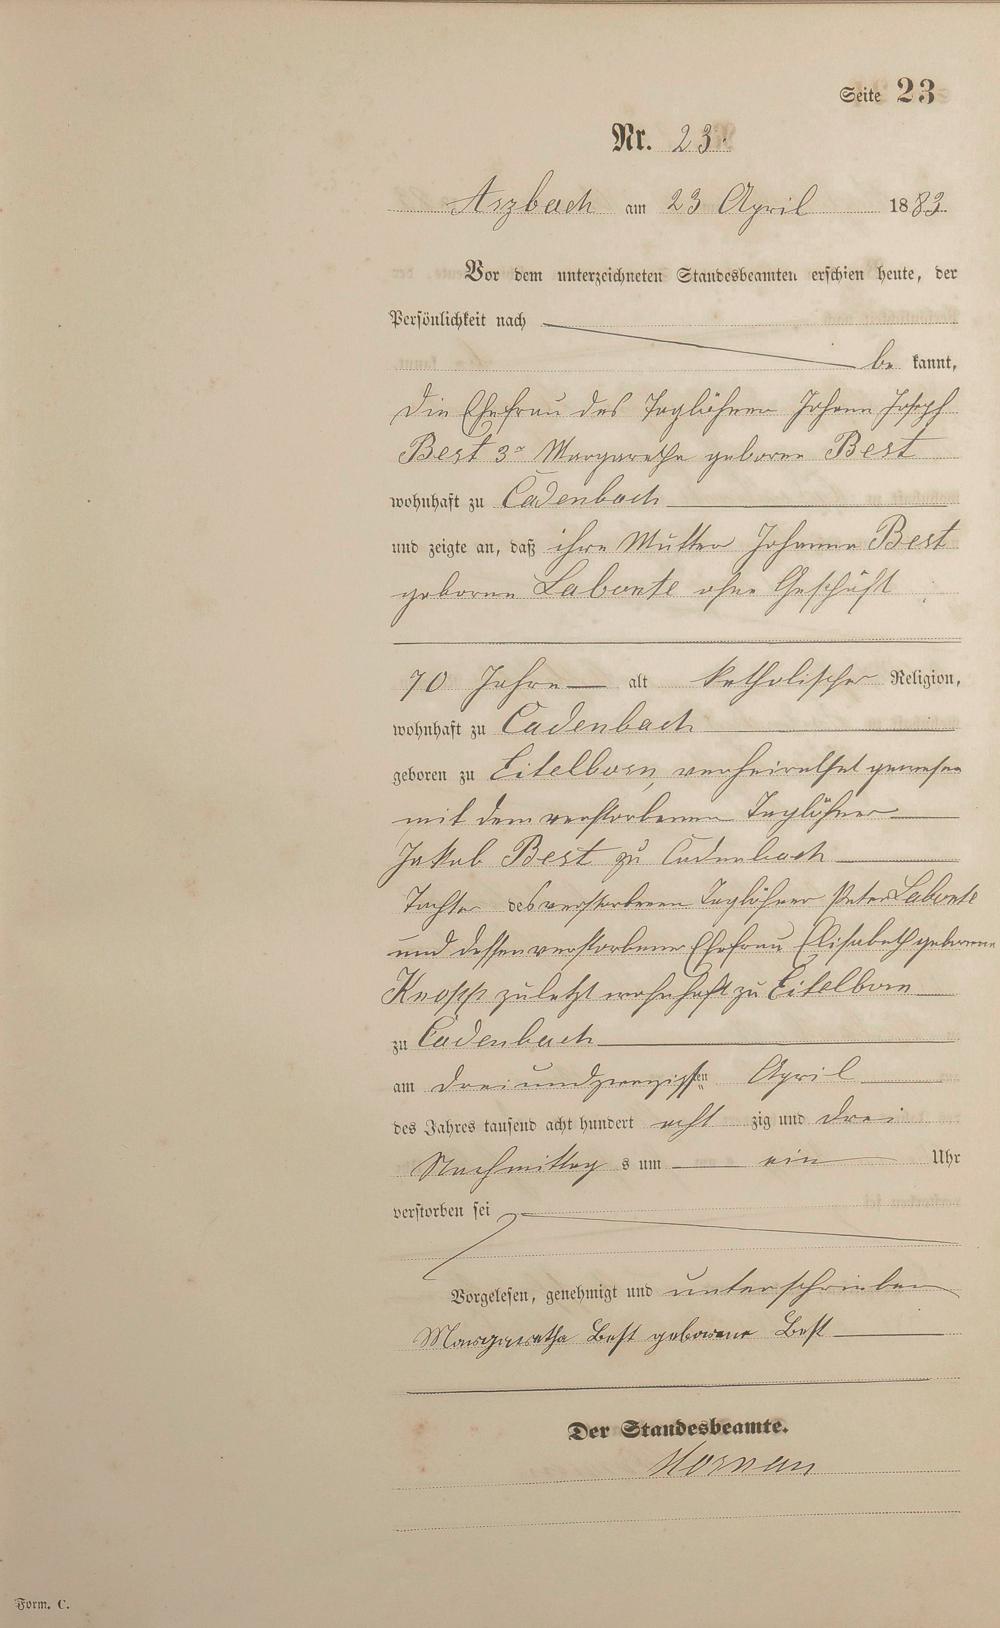 Seite 23
Nr. 23.
Arzbach am 23 April 1883.
Vor dem unterzeichneten Standesbeamten erschien heute, der
Persönlichkeit nach
be kannt,
die Ehefrau des Taglöhners Johann Joseph
Best 3r Margarethe geborne Best
wohnhaft zu Cadenbach
und zeigte an, daß ihre Mutter Johanna Best
geborne Labonte ohne Geschäft
70 Jahre alt katholischer Religion,
wohnhaft zu Cadenbach
geboren zu Eitelborn, verheirathet gewesen
mit dem verstorbenen Taglöhner
Jakob Best zu Cadenbach
Tochter des verstorbenen Taglöhner Peter Labonte
und dessen verstorbener Ehefrau Elisabeth geborene
Knopp zuletzt wohnhaft zu Eitelborn
zu Cadenbach
am dreiundzwanzigsten April
des Jahres tausend acht hundert acht zig und drei
Nachmittag s um ein Uhr
verstorben sei
Vorgelesen, genehmigt und unterschrieben
Margaretha Best geborene Best
Der Standesbeamte.
Form. C.